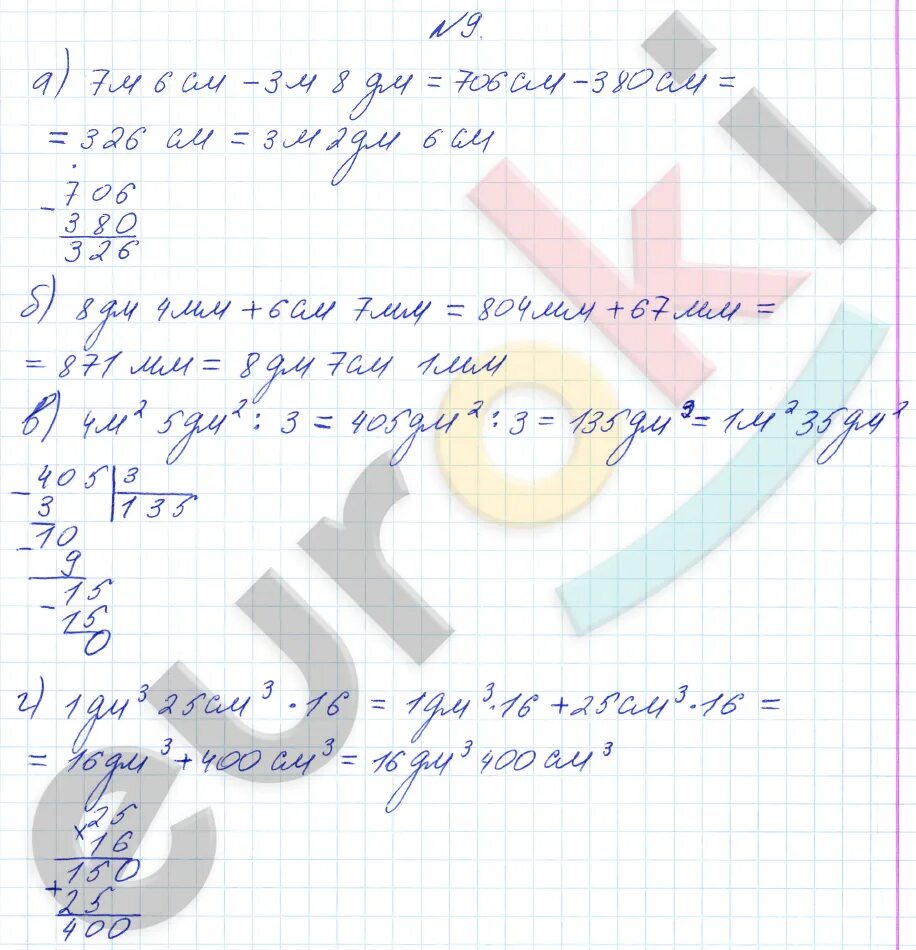 №9.
а) 7м 6см - 3м 8дм = 706см - 380см =
= 326 см = 3м 2дм 6см
- 706
380
326
б) 8дм 4мм + 6см 7мм = 804мм + 67мм =
= 871 мм = 8дм 7см 1мм
в) 4м² 5дм² : 3 = 405дм² : 3 = 135дм² = 1м² 35дм²
- 405 | 3
3 135
- 10
9
- 15
15
0
г) 1дм³ 25см³ · 16 = 1дм³ · 16 + 25см³ · 16 =
= 16дм³ + 400см³ = 16дм³ 400см³
× 25
16
150
+ 25
400
euroki